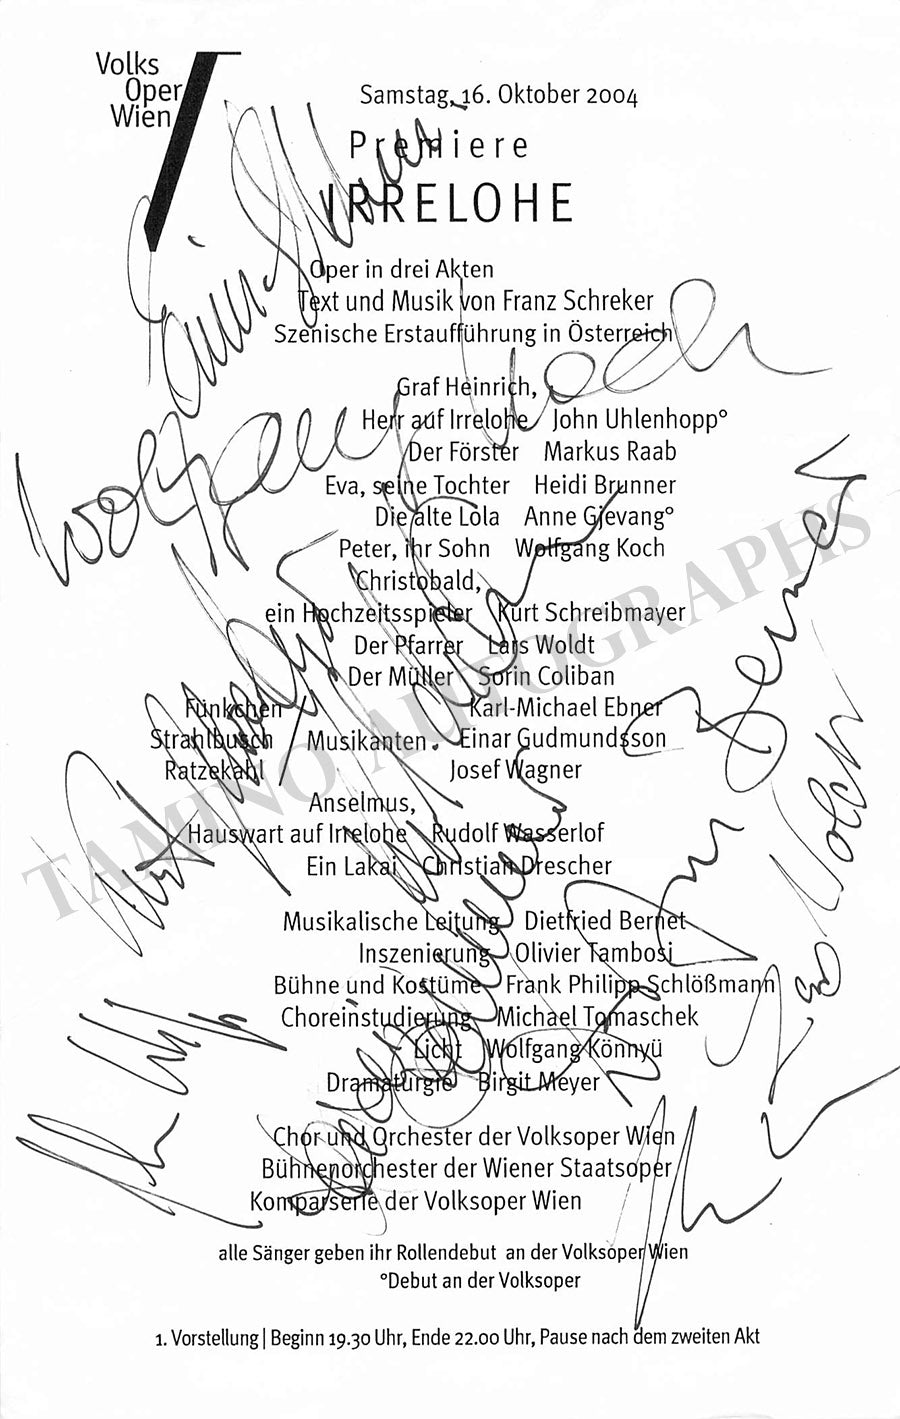 Volks
Oper
Wien
Samstag, 16. Oktober 2004
Premiere
IRRELOHE
Oper in drei Akten
Text und Musik von Franz Schreker
Szenische Erstaufführung in Österreich
Graf Heinrich,
Herr auf Irrelohe John Uhlenhopp°
Der Förster Markus Raab
Eva, seine Tochter Heidi Brunner
Die alte Lola Anne Gjevang°
Peter, ihr Sohn Wolfgang Koch
Christobald,
ein Hochzeitsspieler Kurt Schreibmayer
Der Pfarrer Lars Woldt
Der Müller Sorin Coliban
Fünkchen Karl-Michael Ebner
Strahlbusch / Musikanten Einar Gudmundsson
Ratzekahl Josef Wagner
Anselmus,
Hauswart auf Irrelohe Rudolf Wasserlof
Ein Lakai Christian Drescher
Musikalische Leitung Dietfried Bernet
Inszenierung Olivier Tambosi
Bühne und Kostüme Frank Philipp Schlößmann
Choreinstudierung Michael Tomaschek
Licht Wolfgang Könnyü
Dramaturgie Birgit Meyer
Chor und Orchester der Volksoper Wien
Bühnenorchester der Wiener Staatsoper
Komparserie der Volksoper Wien
alle Sänger geben ihr Rollendebut an der Volksoper Wien
°Debut an der Volksoper
1. Vorstellung | Beginn 19.30 Uhr, Ende 22.00 Uhr, Pause nach dem zweiten Akt
Wolfgang Koch
TAMINO AUTOGRAPHS